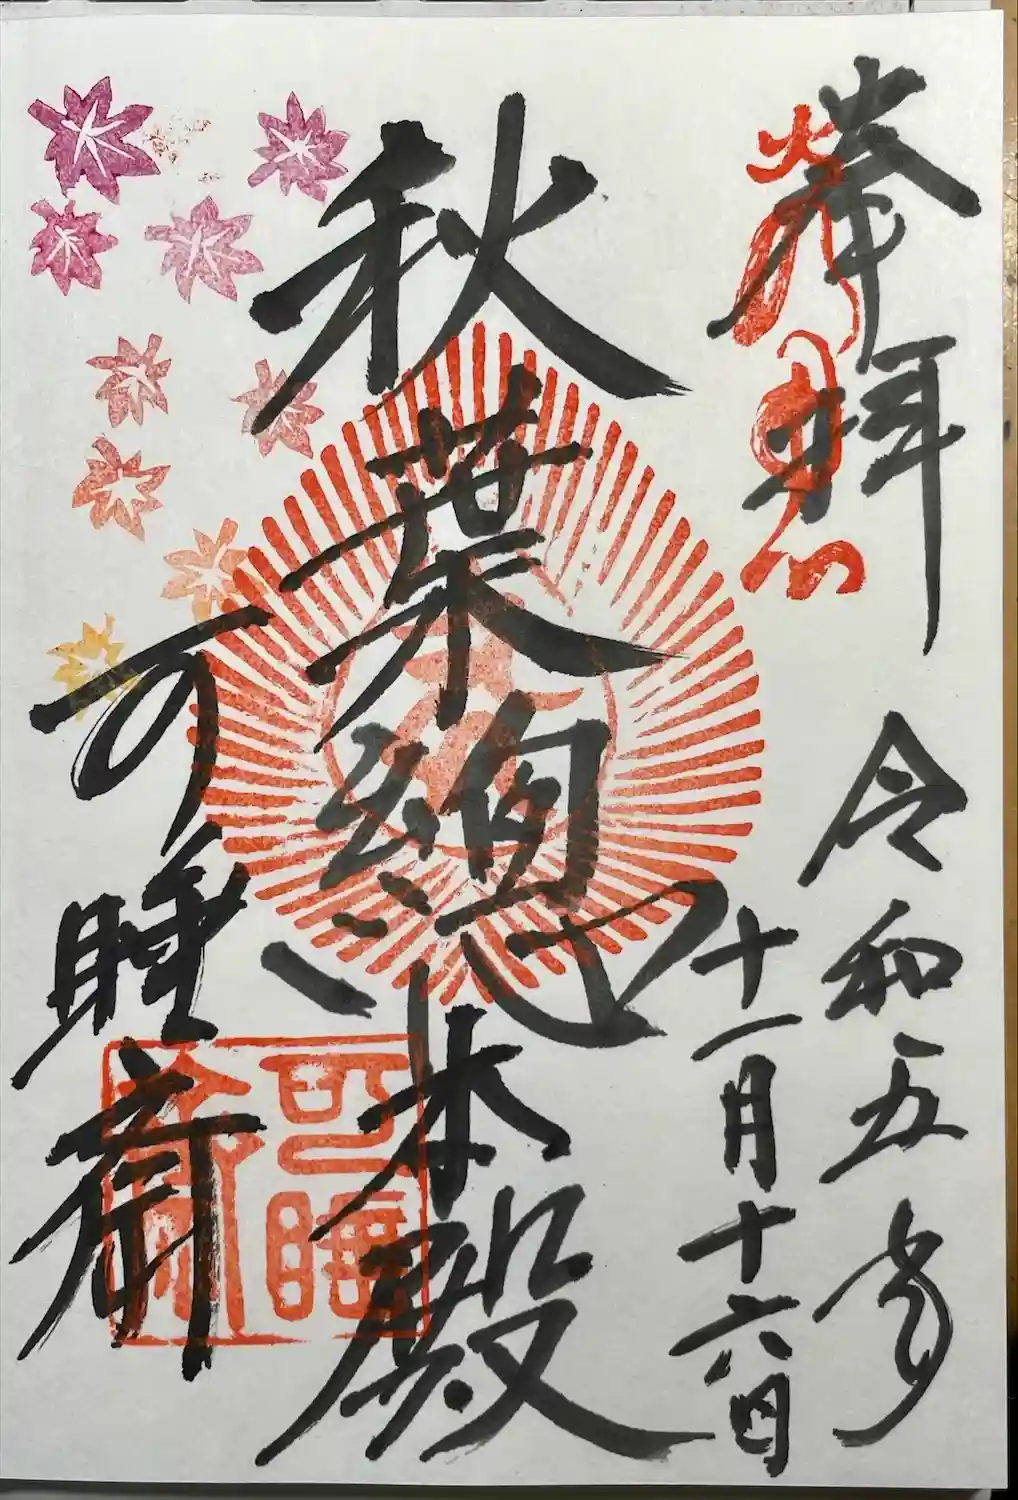 奉拜
令和五年
十一月十六日
秋葉總本殿
可睡斎
可睡
斎